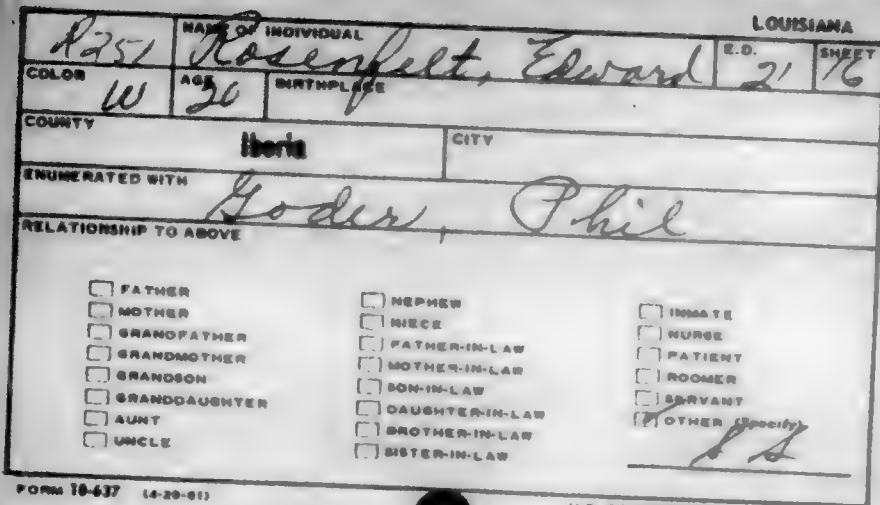 LOUISIANA
R251 NAME OF INDIVIDUAL Rosenfelt, Edward E.D. 21 SHEET 16
COLOR W AGE 20 BIRTHPLACE
COUNTY Iberia CITY
ENUMERATED WITH Goder, Phil
RELATIONSHIP TO ABOVE
FATHER
MOTHER
GRANDFATHER
GRANDMOTHER
GRANDSON
GRANDDAUGHTER
AUNT
UNCLE
NEPHEW
NIECE
FATHER-IN-LAW
MOTHER-IN-LAW
SON-IN-LAW
DAUGHTER-IN-LAW
BROTHER-IN-LAW
SISTER-IN-LAW
INMATE
NURSE
PATIENT
ROOMER
SERVANT
OTHER (Specify)
S S
FORM 10-637 (4-20-61)